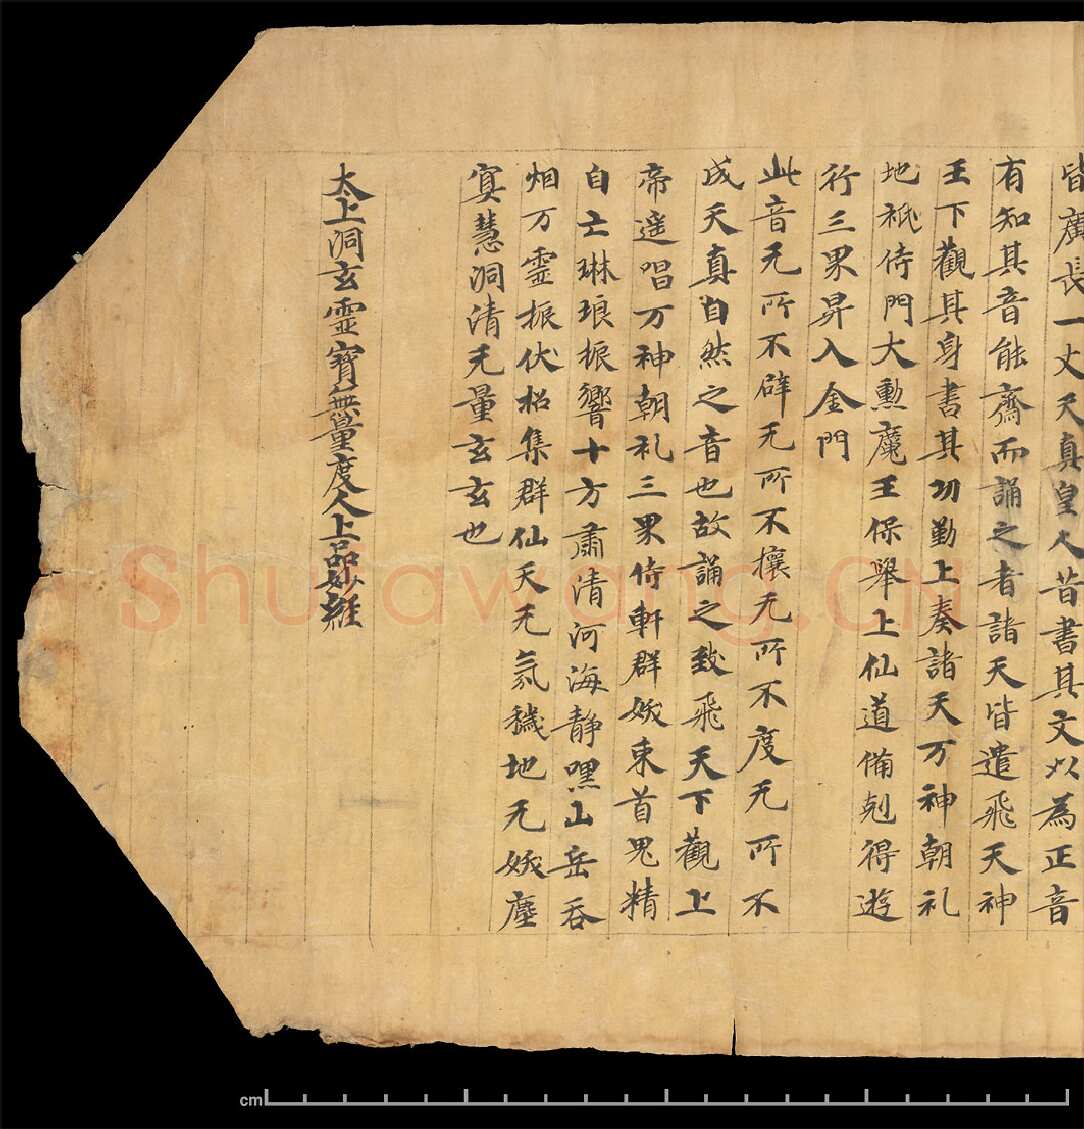 皆廣長一丈天真皇人昔書其文以為正音
有知其音能齋而誦之者諸天皆遣飛天神
王下觀其身書其功勤上奏諸天万神朝礼
地祇侍門大勳魔王保舉上仙道備剋得遊
行三界昇入金門
此音无所不辟无所不攘无所不度无所不
成天真自然之音也故誦之致飛天下觀上
帝遥唱万神朝礼三界侍軒群妖束首鬼精
自亡琳琅振響十方肅清河海静嘿山岳吞
烟万霊振伏招集群仙天无氛穢地无妖塵
寘慧洞清无量玄玄也
太上洞玄靈寳無量度人上品妙經
Shufawang.CN
cm